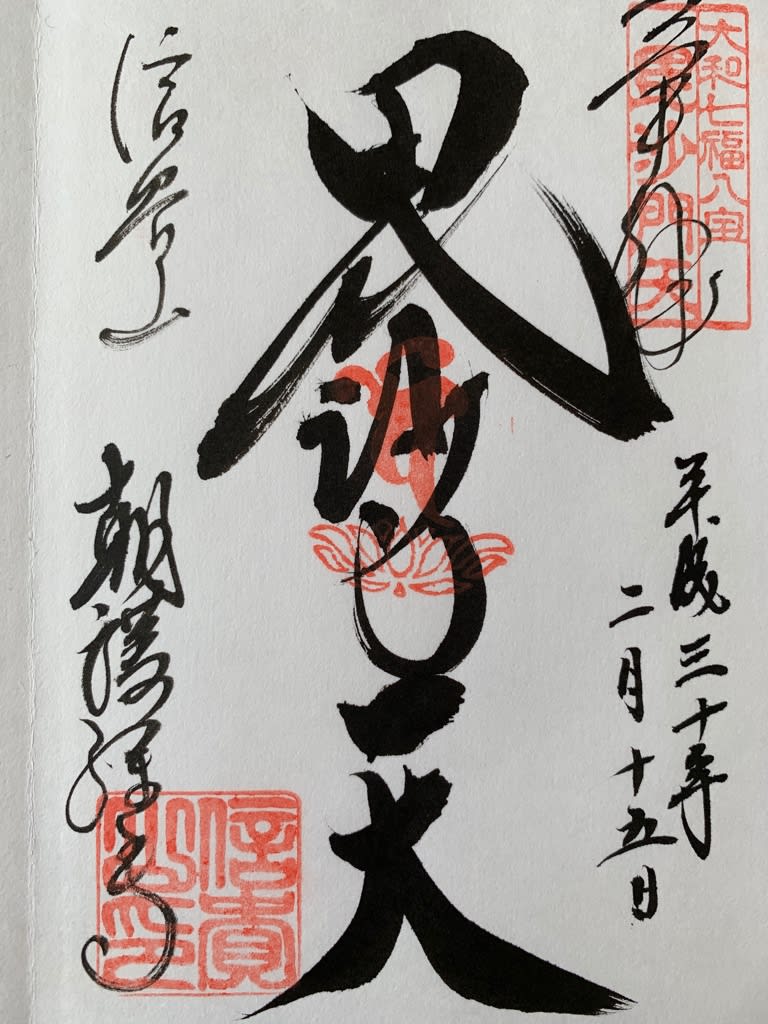 奉拝
大和七福八宝
毘沙門天
平成三十年
二月十五日
毘沙門天
信貴山
朝護孫子寺
信貴
山印